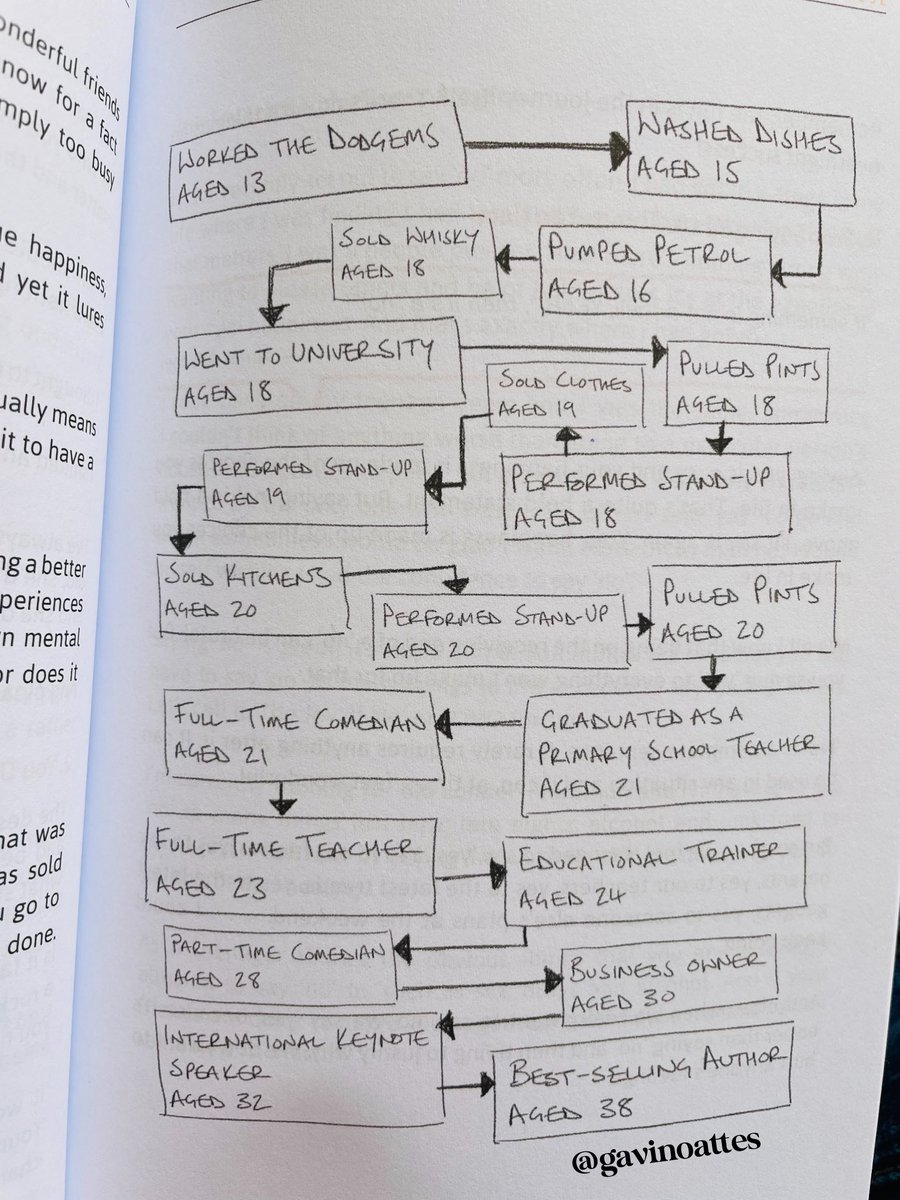 onderful friends
now for a fact
mply too busy
e happiness,
d yet it lures
ually means
it to have a
ng a better
periences
n mental
or does it
hat was
as sold
u go to
done.
WORKED THE DODGEMS
AGED 13
WASHED DISHES
AGED 15
PUMPED PETROL
AGED 16
SOLD WHISKY
AGED 18
WENT TO UNIVERSITY
AGED 18
PULLED PINTS
AGED 18
PERFORMED STAND-UP
AGED 18
SOLD CLOTHES
AGED 19
PERFORMED STAND-UP
AGED 19
SOLD KITCHENS
AGED 20
PERFORMED STAND-UP
AGED 20
PULLED PINTS
AGED 20
GRADUATED AS A
PRIMARY SCHOOL TEACHER
AGED 21
FULL-TIME COMEDIAN
AGED 21
FULL-TIME TEACHER
AGED 23
EDUCATIONAL TRAINER
AGED 24
PART-TIME COMEDIAN
AGED 28
BUSINESS OWNER
AGED 30
INTERNATIONAL KEYNOTE
SPEAKER
AGED 32
BEST-SELLING AUTHOR
AGED 38
@gavinoattes